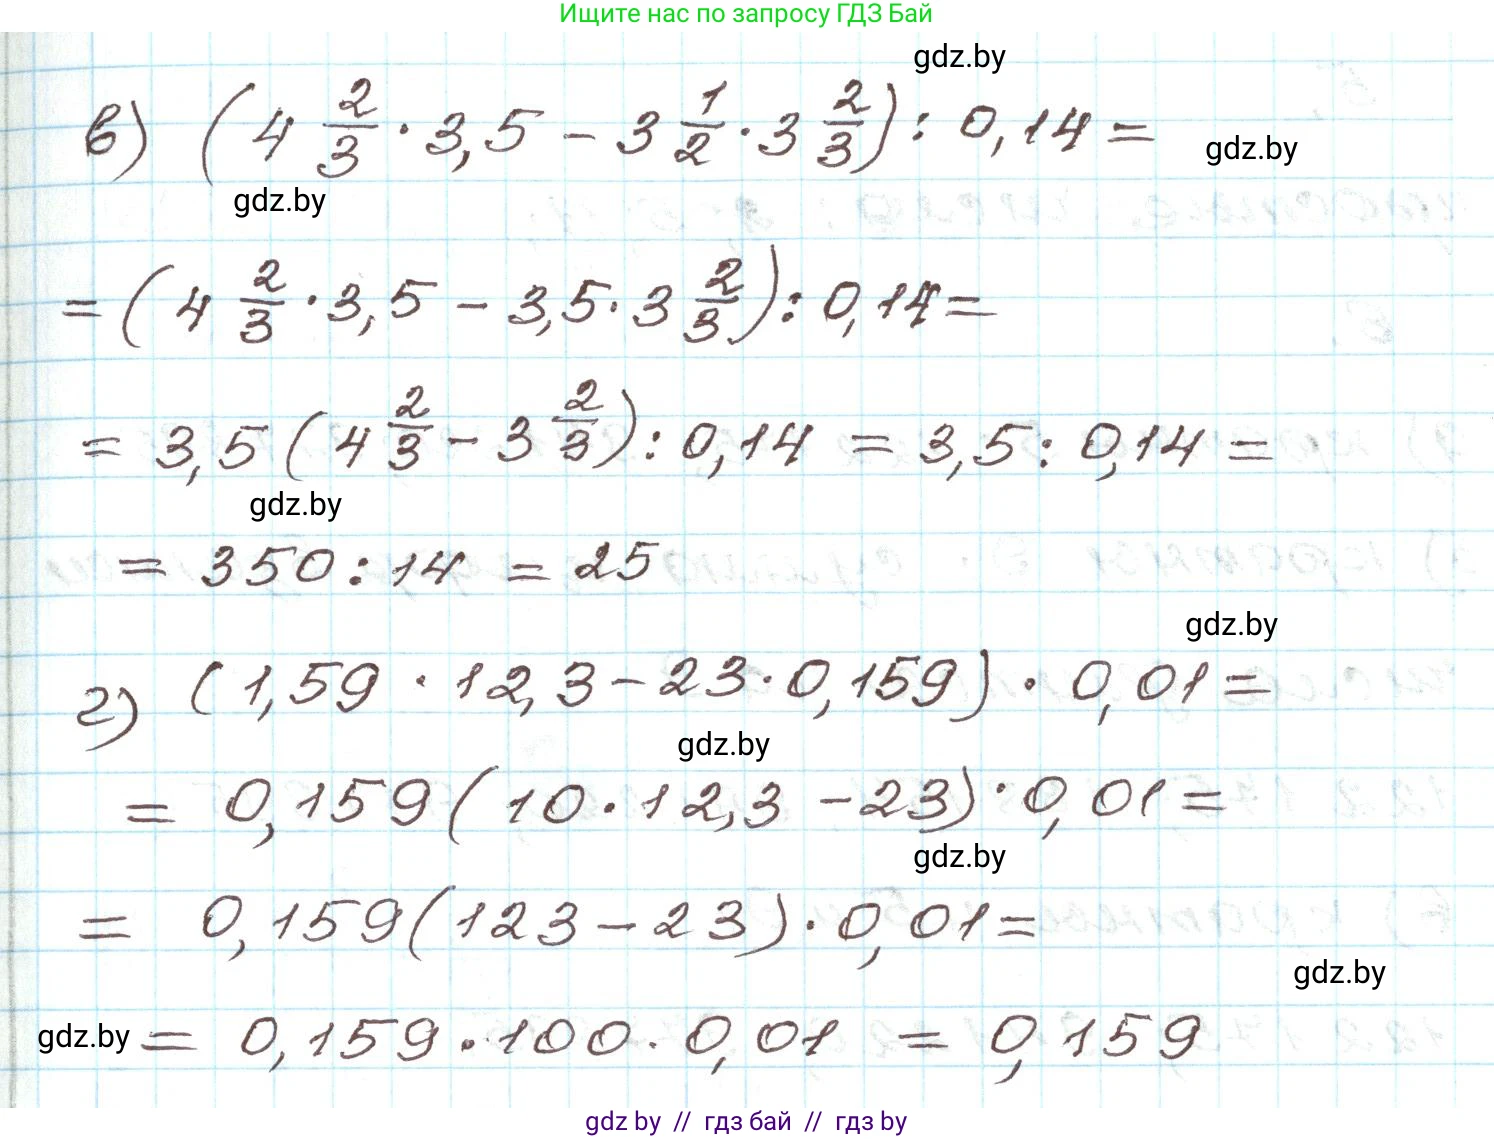 Ищите нас по запросу ГДЗ Бай
gdz.by
в) (4 2/3 · 3,5 - 3 1/2 · 3 2/3) : 0,14 =
gdz.by
gdz.by
= (4 2/3 · 3,5 - 3,5 · 3 2/3) : 0,14 =
= 3,5 (4 2/3 - 3 2/3) : 0,14 = 3,5 : 0,14 =
gdz.by
= 350 : 14 = 25
gdz.by
г) (1,59 · 12,3 - 23 · 0,159) · 0,01 =
gdz.by
= 0,159 (10 · 12,3 - 23) · 0,01 =
gdz.by
= 0,159 (123 - 23) · 0,01 =
gdz.by
gdz.by
= 0,159 · 100 · 0,01 = 0,159
gdz by // гдз бай // гдз by